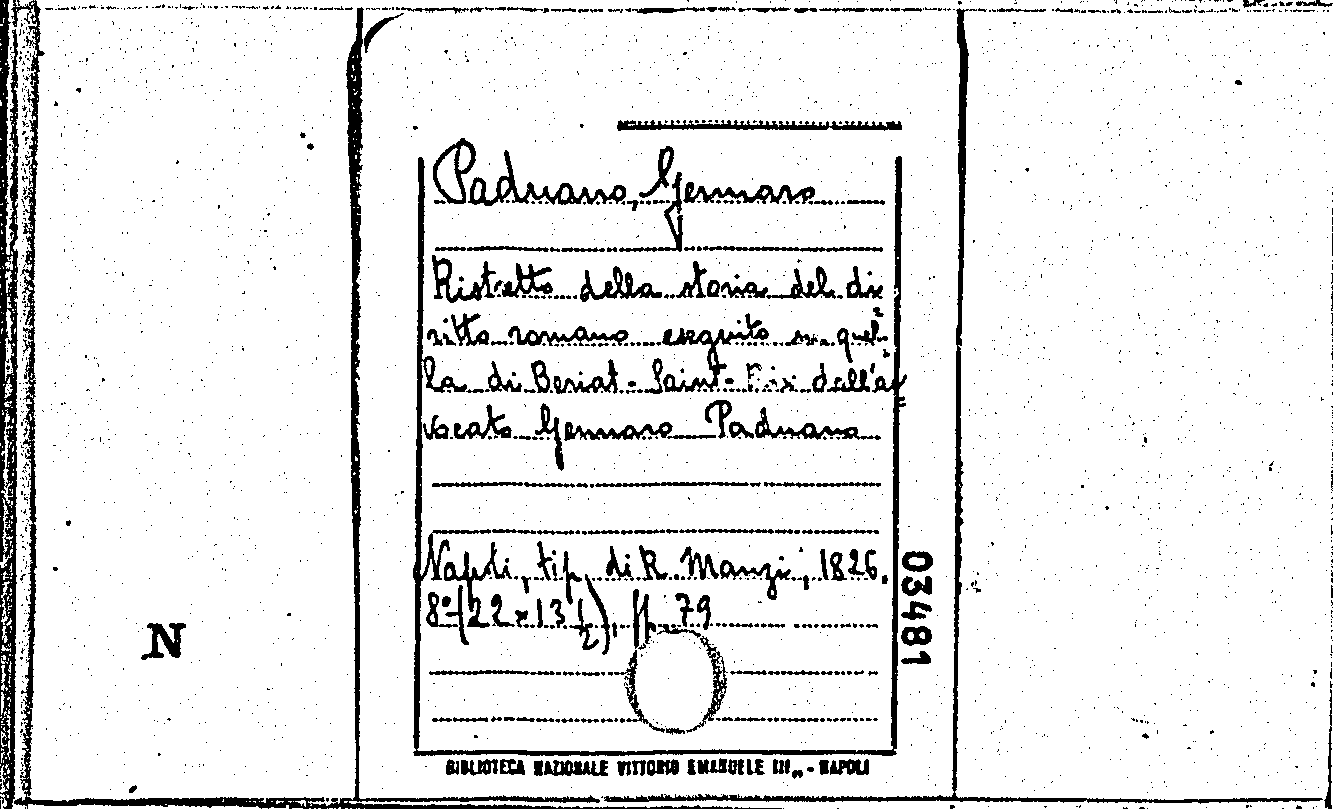 Paduano, Gennaro
Ristretto della storia del di=
ritto romano eseguito su quel=
la di Beriat-Saint-Prix dall'av=
vocato Gennaro Paduano
Napoli, tip. di R. Manzi, 1826.
8°(22x13 1/2), pp. 79
03481
N
BIBLIOTECA NAZIONALE VITTORIO EMANUELE III„ - NAPOLI